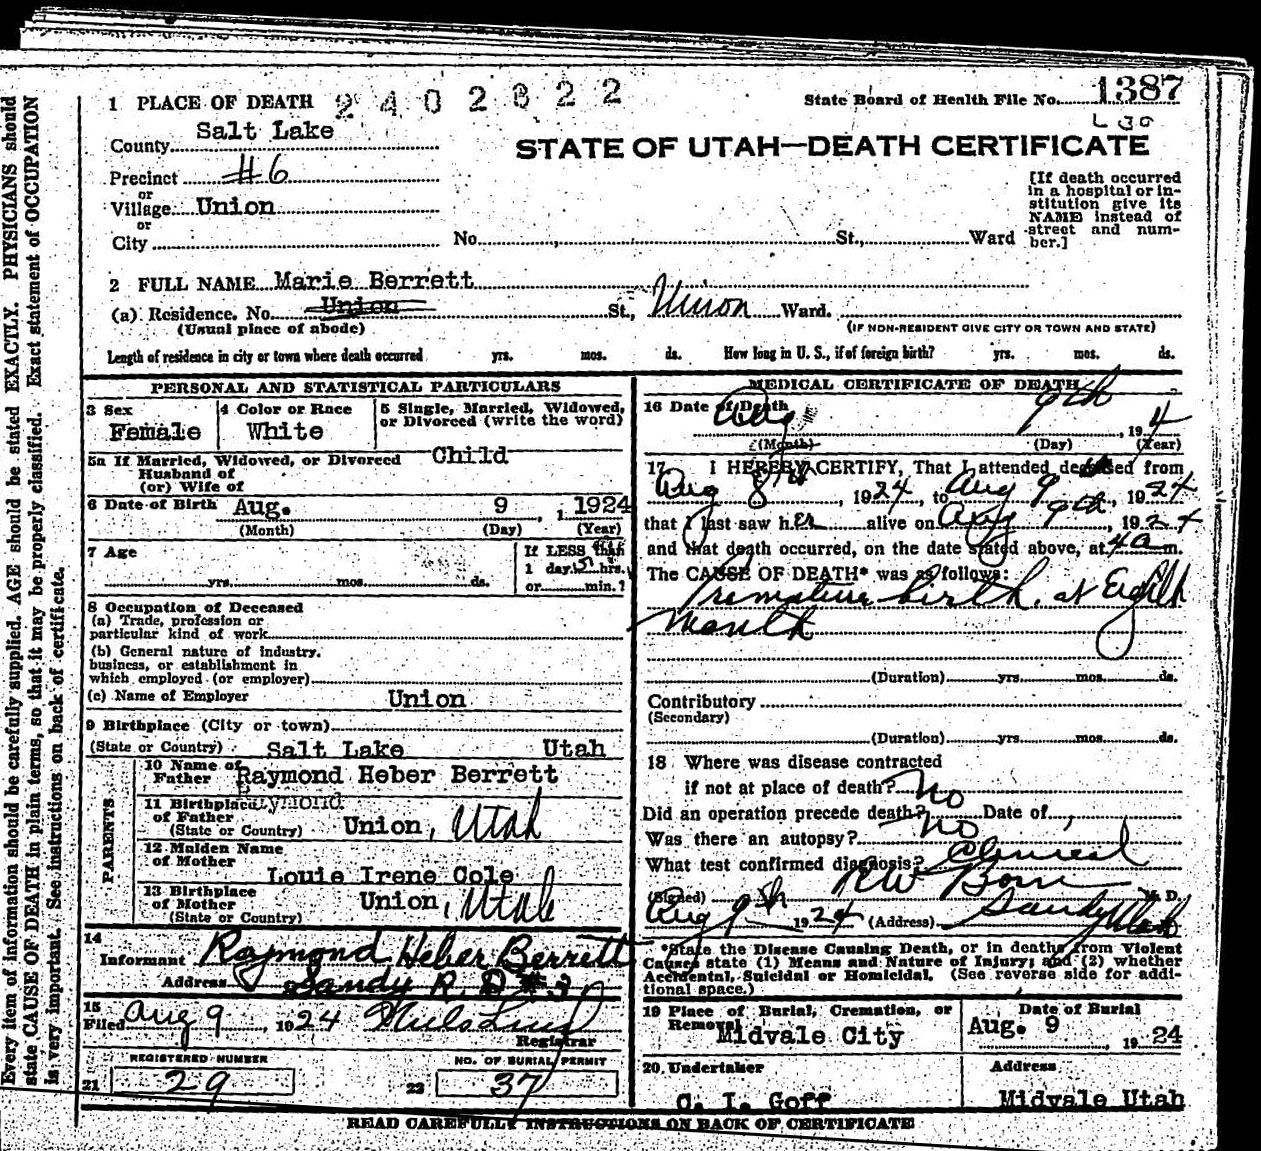 1 PLACE OF DEATH 2402322
State Board of Health File No. 1387
County Salt Lake
STATE OF UTAH—DEATH CERTIFICATE
Precinct #6
or
Village Union
or
City No. St., Ward
[If death occurred
in a hospital or in-
stitution give its
NAME instead of
street and num-
ber.]
2 FULL NAME Marie Berrett
(a) Residence. No. Union St., Union Ward.
(Usual place of abode)
(IF NON-RESIDENT GIVE CITY OR TOWN AND STATE)
Length of residence in city or town where death occurred yrs. mos. ds. How long in U. S., if of foreign birth? yrs. mos. ds.
PERSONAL AND STATISTICAL PARTICULARS
3 Sex
Female
4 Color or Race
White
5 Single, Married, Widowed,
or Divorced (write the word)
Child
5a If Married, Widowed, or Divorced
Husband of
(or) Wife of
6 Date of Birth Aug. 9, 1924
(Month) (Day) (Year)
7 Age
yrs. mos. ds.
If LESS than
1 day hrs.
or min.?
8 Occupation of Deceased
(a) Trade, profession or
particular kind of work
(b) General nature of industry,
business, or establishment in
which employed (or employer)
(c) Name of Employer
Union
9 Birthplace (City or town)
(State or Country) Salt Lake Utah
PARENTS
10 Name of
Father Raymond Heber Berrett
11 Birthplace
of Father
(State or Country) Union, Utah
12 Maiden Name
of Mother
Louie Irene Cole
13 Birthplace
of Mother
(State or Country) Union, Utah
14
Informant Raymond Heber Berrett
Address Sandy R. D #3
15
Filed Aug 9, 1924
Registrar
REGISTERED NUMBER
21 29
NO. OF BURIAL PERMIT
22 37
MEDICAL CERTIFICATE OF DEATH
16 Date of Death
Aug 9th, 19 4
(Month) (Day) (Year)
17 I HEREBY CERTIFY, That I attended deceased from
Aug 8th, 1924, to Aug 9th, 1924
that I last saw her alive on Aug 9th, 1924
and that death occurred, on the date stated above, at 4 a m.
The CAUSE OF DEATH* was as follows:
Premature birth, at Eighth
Month
(Duration) yrs. mos. ds.
Contributory
(Secondary)
(Duration) yrs. mos. ds.
18 Where was disease contracted
if not at place of death? No
Did an operation precede death? No Date of
Was there an autopsy?
What test confirmed diagnosis? Clinical
(Signed) R W M. D.
Aug 9th 1924 (Address) Sandy Utah
*State the Disease Causing Death, or in deaths from Violent
Causes state (1) Means and Nature of Injury; and (2) whether
Accidental, Suicidal or Homicidal. (See reverse side for addi-
tional space.)
19 Place of Burial, Cremation, or
Removal Midvale City
Date of Burial
Aug. 9, 19 24
20 Undertaker
C. I. Goff
Address
Midvale Utah
READ CAREFULLY INSTRUCTIONS ON BACK OF CERTIFICATE
Every item of information should be carefully supplied. AGE should be stated EXACTLY. PHYSICIANS should
state CAUSE OF DEATH in plain terms, so that it may be properly classified. Exact statement of OCCUPATION
is very important. See instructions on back of certificate.